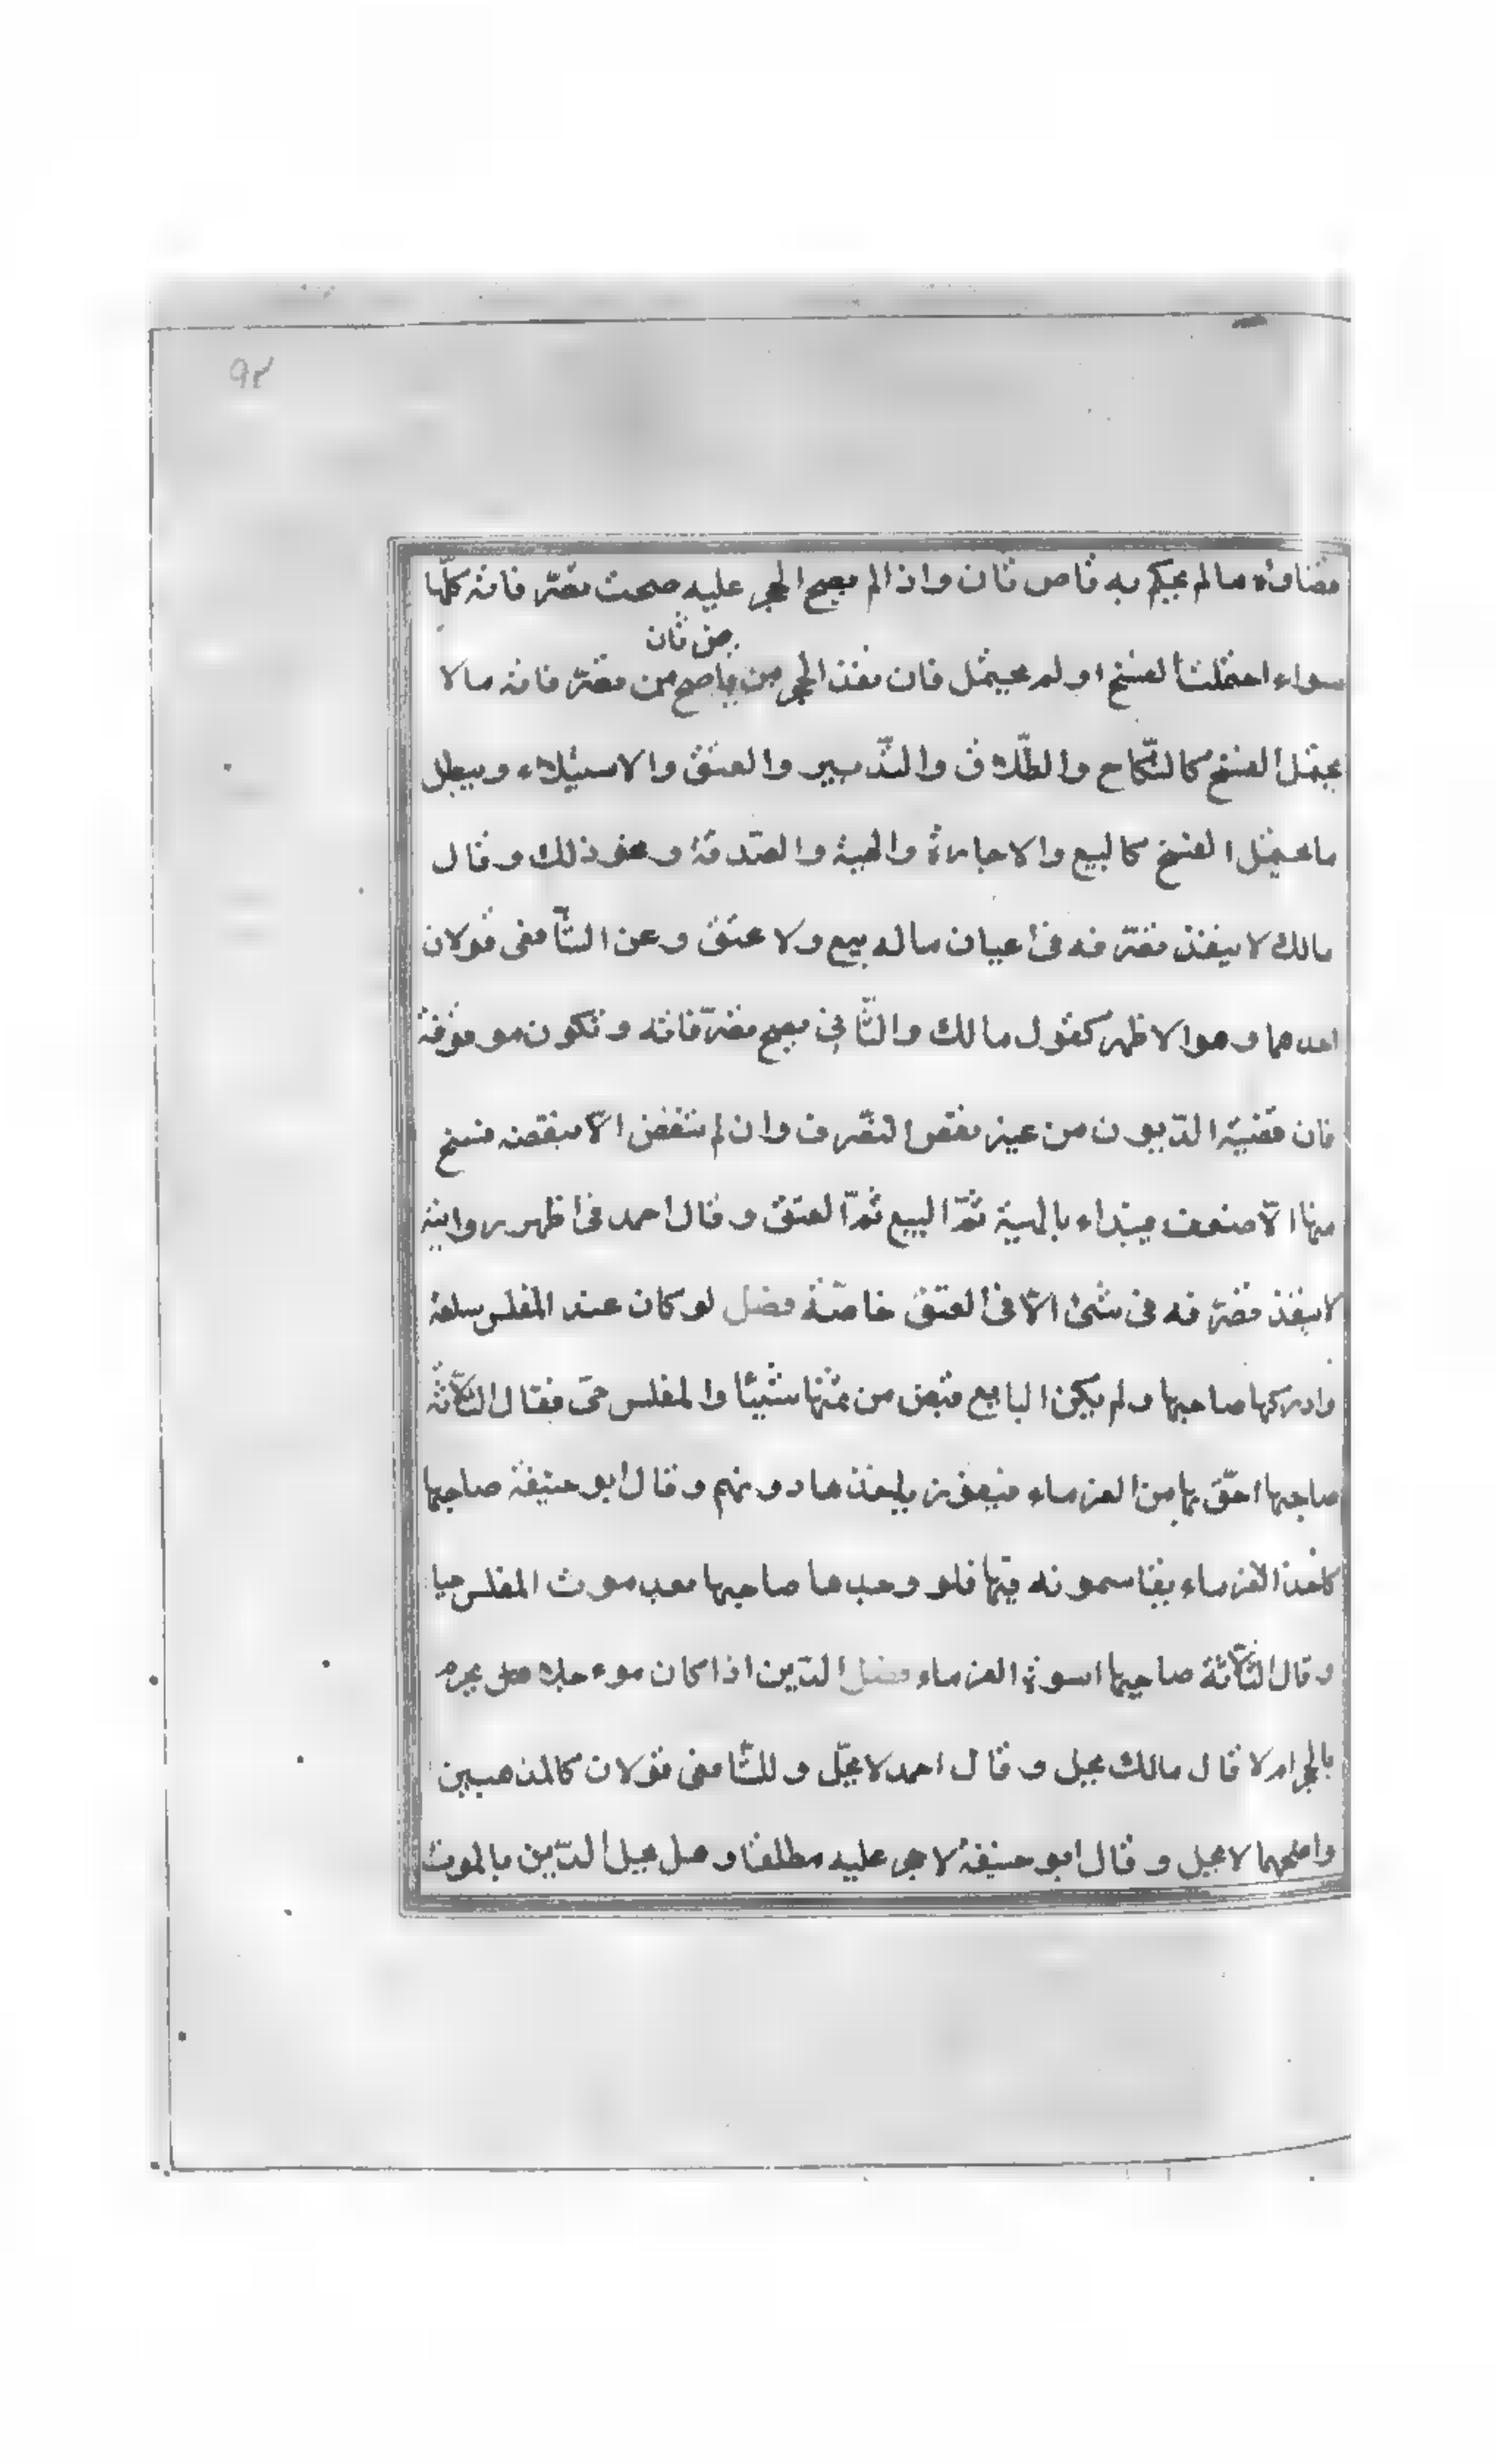 ٩٢
قضاؤه ما لم يحكم به قاض ثان واذا لم يصح الحجر عليه صحت تصرّفاته كلّها
سواء احتملت الفسخ او لم يحتمل فان نفذ الحجر من قاض ثان صح من تصرّفاته ما لا
يحتمل الفسخ كالنّكاح والطّلاق والتّدبير والعتق والاستيلاء ويبطل
ما يحتمل الفسخ كالبيع والاجارة والهبة والصّدقة ونحو ذلك وقال
مالك لا ينفذ تصرّفه فى اعيان ماله ببيع ولا عتق وعن الشّافعى قولان
احدهما وهو الاظهر كقول مالك والثّانى يصح تصرّفاته وتكون موقوفة
فان قضيت الدّيون من غير نقض التصّرف وان لم تنقض الّا بنقضه فسخ
منها الّا ضعف يبتداء بالهبة ثمّ البيع ثمّ العتق وقال احمد فى اظهر روايته
لا ينفذ تصرّفه فى شئ الّا فى العتق خاصّة فصل لو كان عند المفلس سلعة
وادركها صاحبها ولم يكن البايع قبض من ثمنها شيئا والمفلس حىّ فقال الثّلاثة
صاحبها احقّ بها من الغرماء فيفوز بإخذها دونهم وقال ابو حنيفة صاحبها
كاحد الغرماء يقاسمونه فيها فلو وجدها صاحبها بعد موت المفلس
وقال الثّلاثة صاحبها اسوة الغرماء فصل الدّين اذا كان مؤجلا هل يحرم
بالحجر ام لا قال مالك يحل وقال احمد لا يحلّ وللشّافعى قولان كالمذهبين
واصحهما لا يحل وقال ابو حنيفة لا حجر عليه مطلقا وهل يحل الدّين بالموت